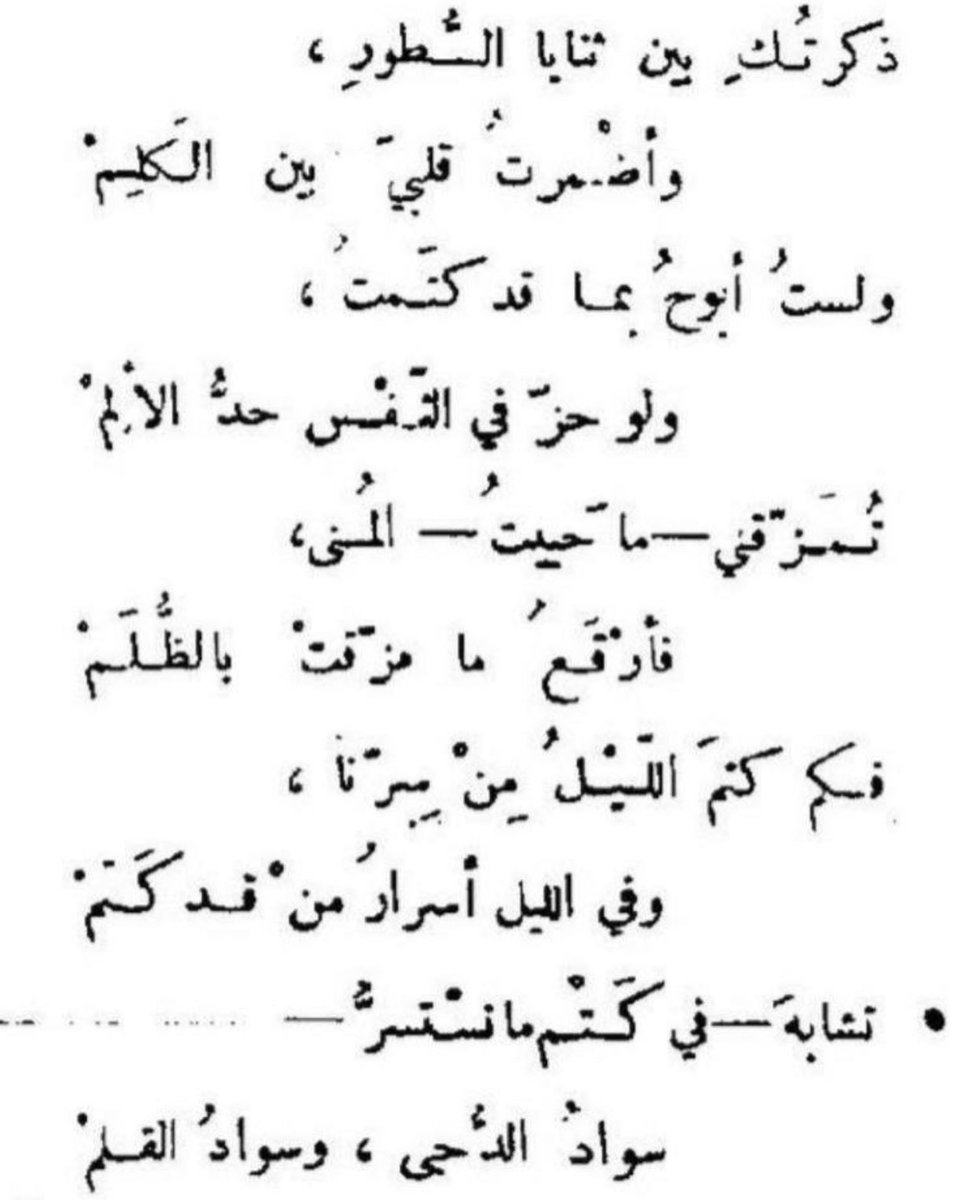 ذكرتُكِ بين ثنايا السُّطورِ ،
وأضْمرتُ قلبيَ بين الكَلِمْ
ولستُ أبوحُ بما قد كتَمتُ ،
ولو حزّ في النّفْس حدُّ الألمْ
تُمَزّقني — ما حَييتُ — المُنى ،
فأرْقَعُ ما مزّقتْ بالظُّلَمْ
فكم كتمَ اللّيْلُ مِنْ سِرّنا ،
وفي الليل أسرارُ منْ قد كَتَمْ
• تشابهَ — في كَتْمِ ما نسْتسرُّ —
سوادُ الدُّجى ، وسوادُ القلمْ